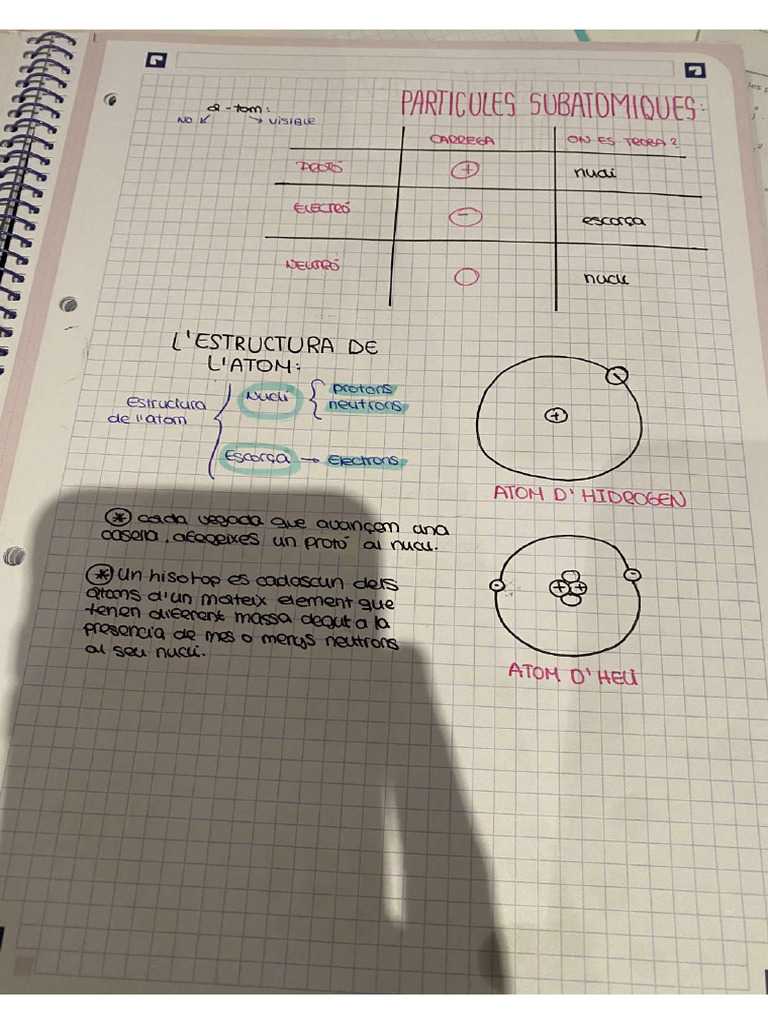 a-tom:
NO VISIBLE
PARTICULES SUBATOMIQUES:
CARREGA ON ES TROBA?
PROTÓ + nucli
ELECTRÓ - escorça
NEUTRÓ nucli
L'ESTRUCTURA DE
L'ATOM:
Estructura
de l'atom
Nucli
protons
neutrons
Escorça → Electrons
+
-
ATOM D'HIDROGEN
* cada vegada que avançem una
casella, afegeixes un protó al nucli.
* Un hisotop es cadascun dels
àtoms d'un mateix element que
tenen diferent massa degut a la
presencia de mes o menys neutrons
al seu nucli.
- + + -
ATOM D'HELI